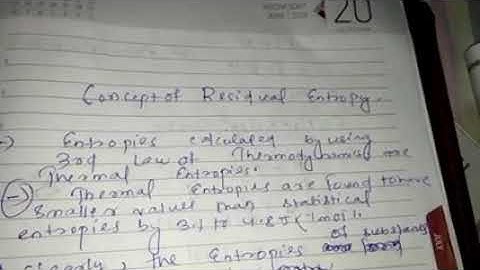 WEDNESDAY
20
Concept of Residual Entropy.
Entropies calculated by using
3rd Law of Thermodynamics are
Thermal Entropies.
Thermal Entropies are found to have
smaller values than statistical
entropies by 3.1 to 4.8 J
of substance
clearly, the Entropies
JULY